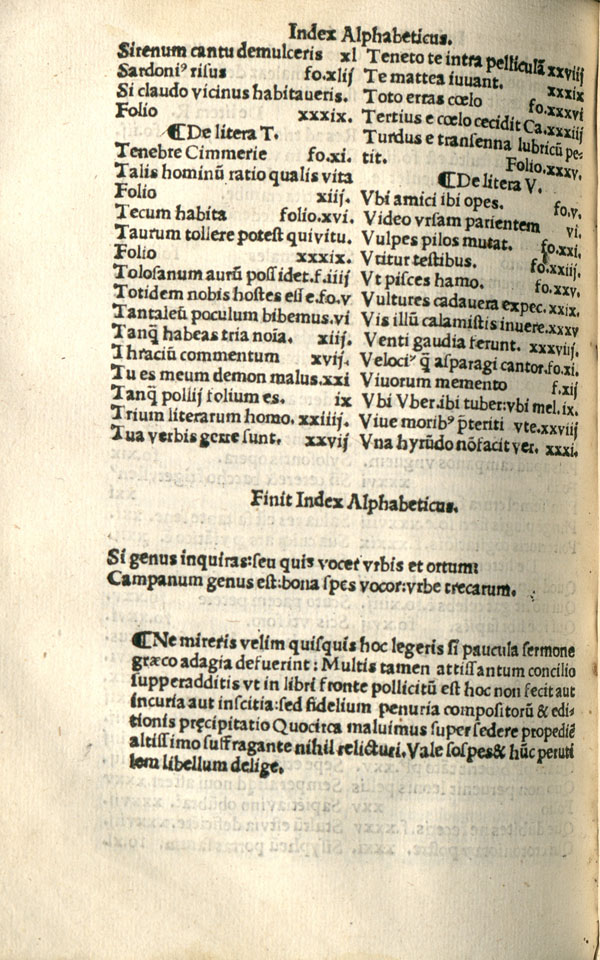 Index Alphabeticus.
Sirenum cantu demulceris xl
Sardoniꝰ risus fo.xlij
Si claudo vicinus habitaueris.
Folio xxxix.
¶De litera T.
Tenebre Cimmerie fo.xi.
Talis hominū ratio qualis vita
Folio xiij.
Tecum habita folio.xvi.
Taurum tollere potest qui vitu.
Folio xxxix.
Tolosanum aurū possidet.f.iiij
Totidem nobis hostes esse.fo.v
Tantaleū poculum bibemus.vi
Tanq̄ habeas tria noīa. xiij.
Thraciū commentum xvij.
Tu es meum demon malus.xxi
Tanq̄ pollij folium es. ix
Trium literarum homo. xxiiij.
Tua verbis gerre sunt. xxvij
Teneto te intra pelliculā xxviij
Te mattea iuuant. xxxix
Toto erras cœlo fo.xxxvi
Tertius e cœlo cecidit Ca.xxxiij
Turdus e transenna lubricū pe-
tit. Folio.xxxv.
¶De litera V.
Vbi amici ibi opes. fo.v.
Video vrsam parientem vi.
Vulpes pilos mutat. fo.xxi.
Vtitur testibus. fo.xxiij.
Vt pisces hamo. fo.xxv.
Vultures cadauera expec.xxix.
Vis illū calamistis inuere.xxxv
Venti gaudia ferunt. xxxviij.
Velociꝰ q̄ asparagi cantor.fo.xi.
Viuorum memento f.xij
Vbi Vber.ibi tuber:vbi mel.ix.
Viue moribꝰ p̄teriti vte.xxviij
Vna hyrūdo nōfacit ver. xxxi.
Finit Index Alphabeticus.
Si genus inquiras:seu quis vocer vrbis et ortum:
Campanum genus est:bona spes vocor:vrbe trecarum.
¶Ne mireris velim quisquis hoc legeris si paucula sermone
græco adagia defuerint: Multis tamen attissantum concilio
supperadditis vt in libri fronte pollicitū est hoc non fecit aut
incuria aut inscitia:sed fidelium penuria compositorū & edi-
tionis pręcipitatio Quocirca maluimus super sedere propediē
altissimo suffragante nihil relicturi. Vale sospes& hūc peruti
lem libellum delige.